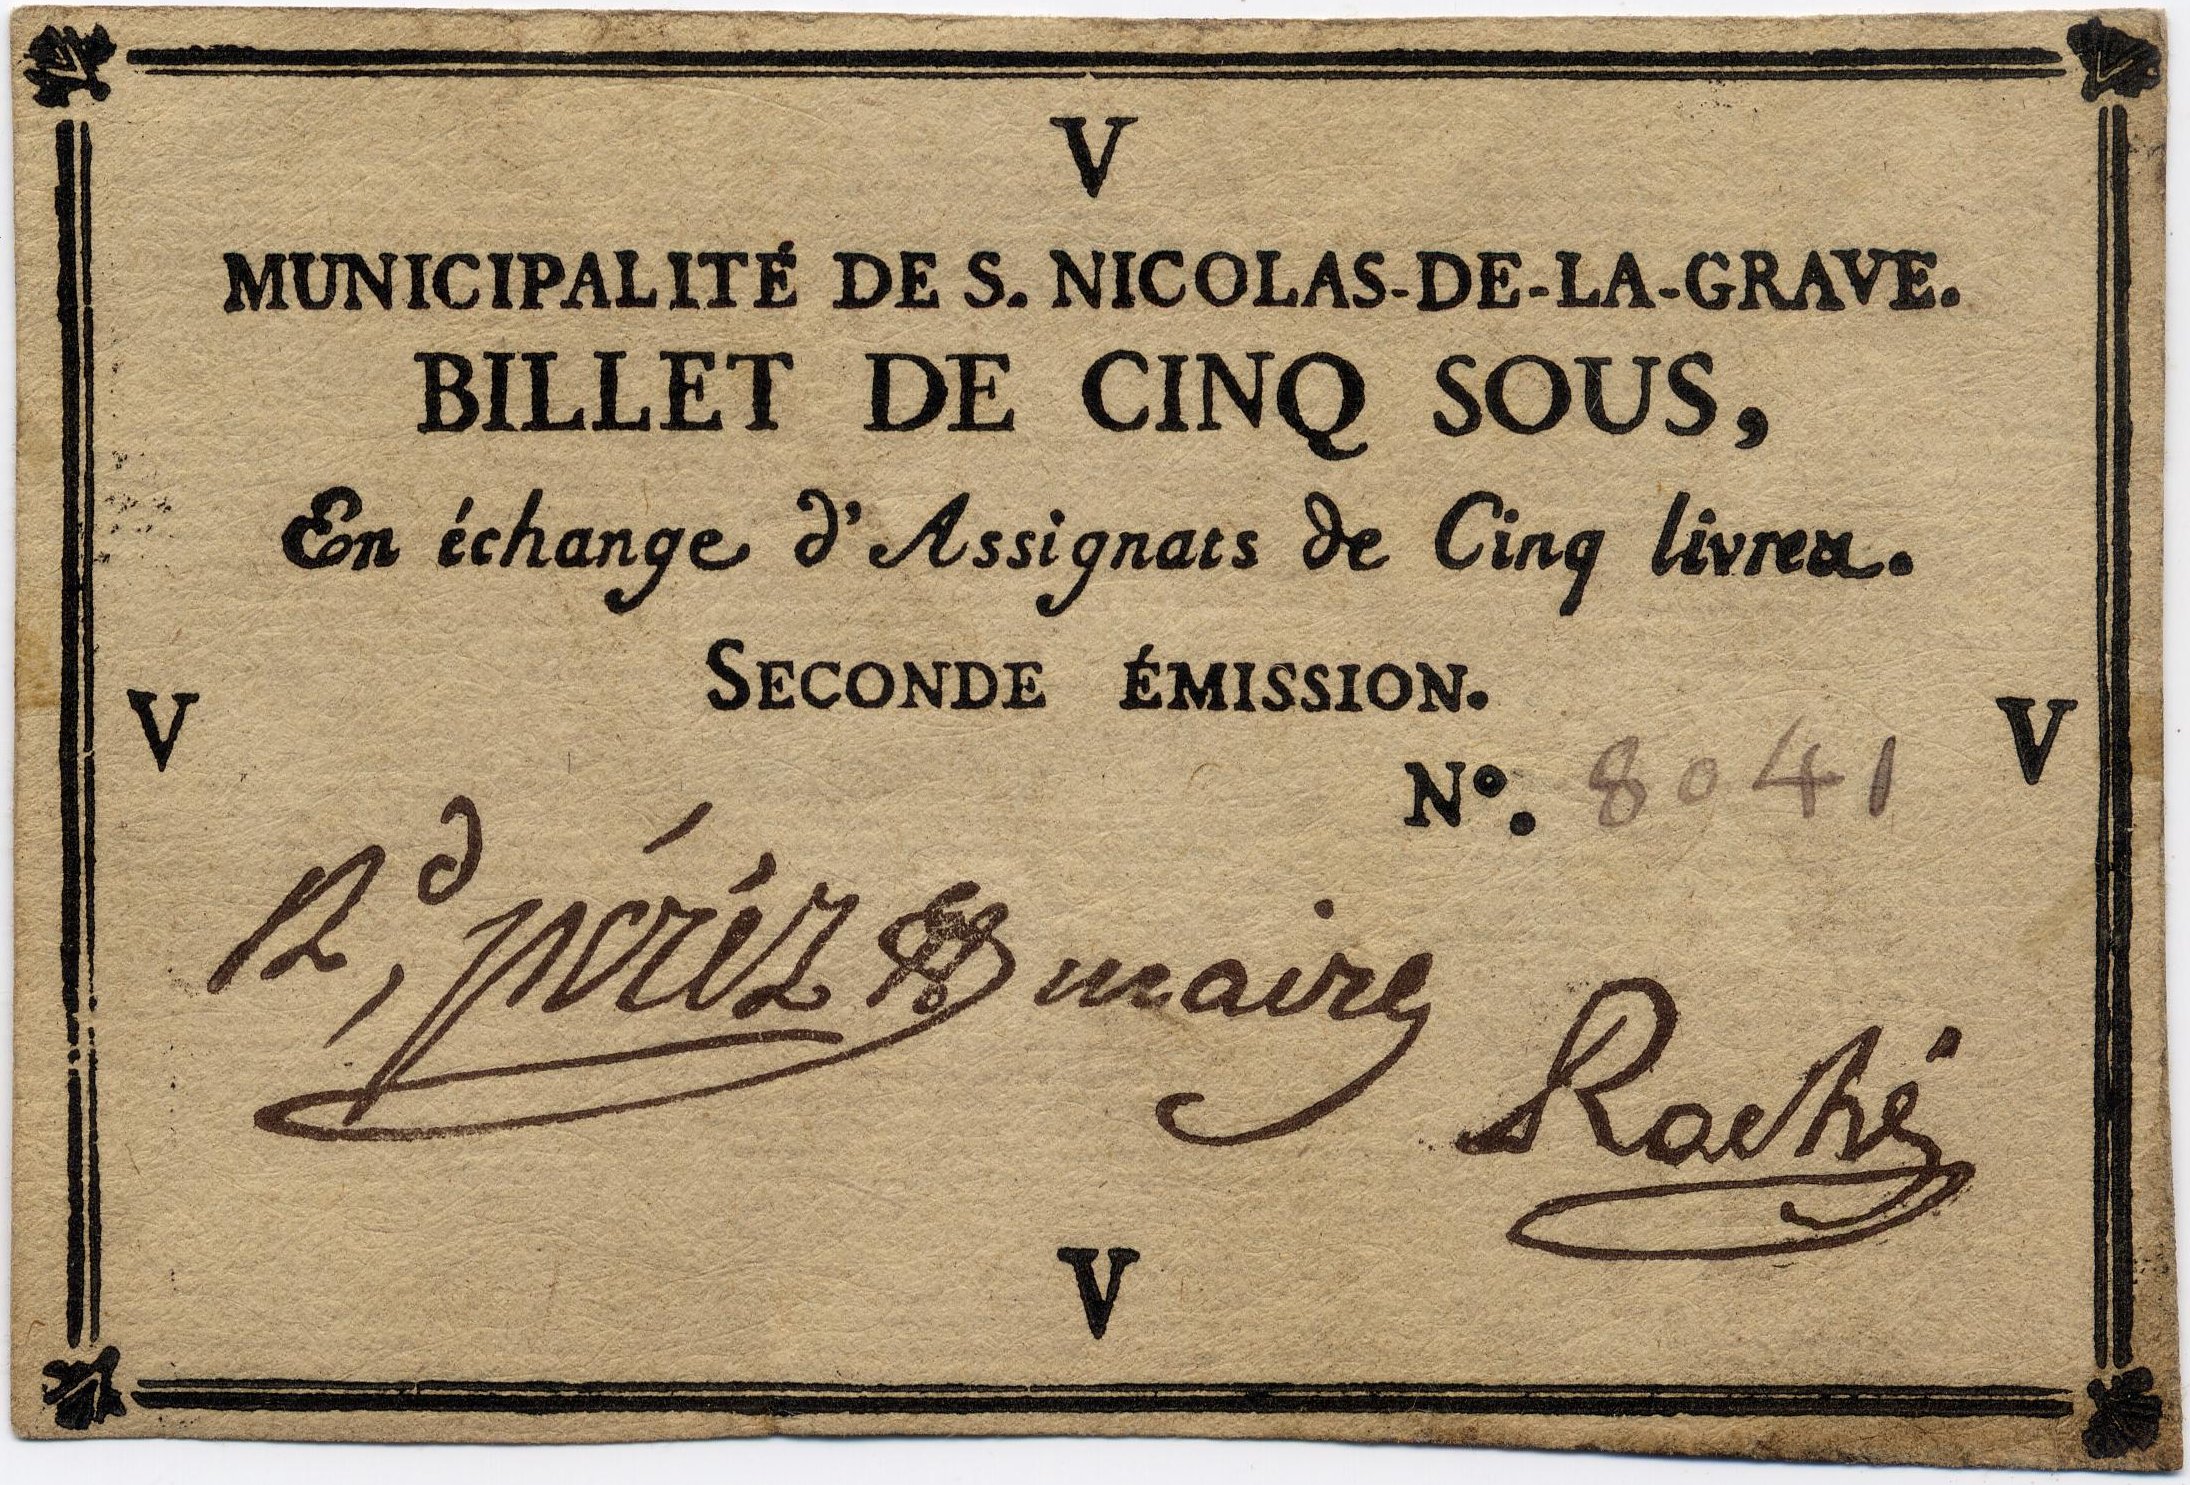 V
MUNICIPALITÉ DE S. NICOLAS-DE-LA-GRAVE.
BILLET DE CINQ SOUS,
En échange d'Assignats de Cinq livres.
SECONDE ÉMISSION.
V
V
Nº. 8041
pérèz maire
V